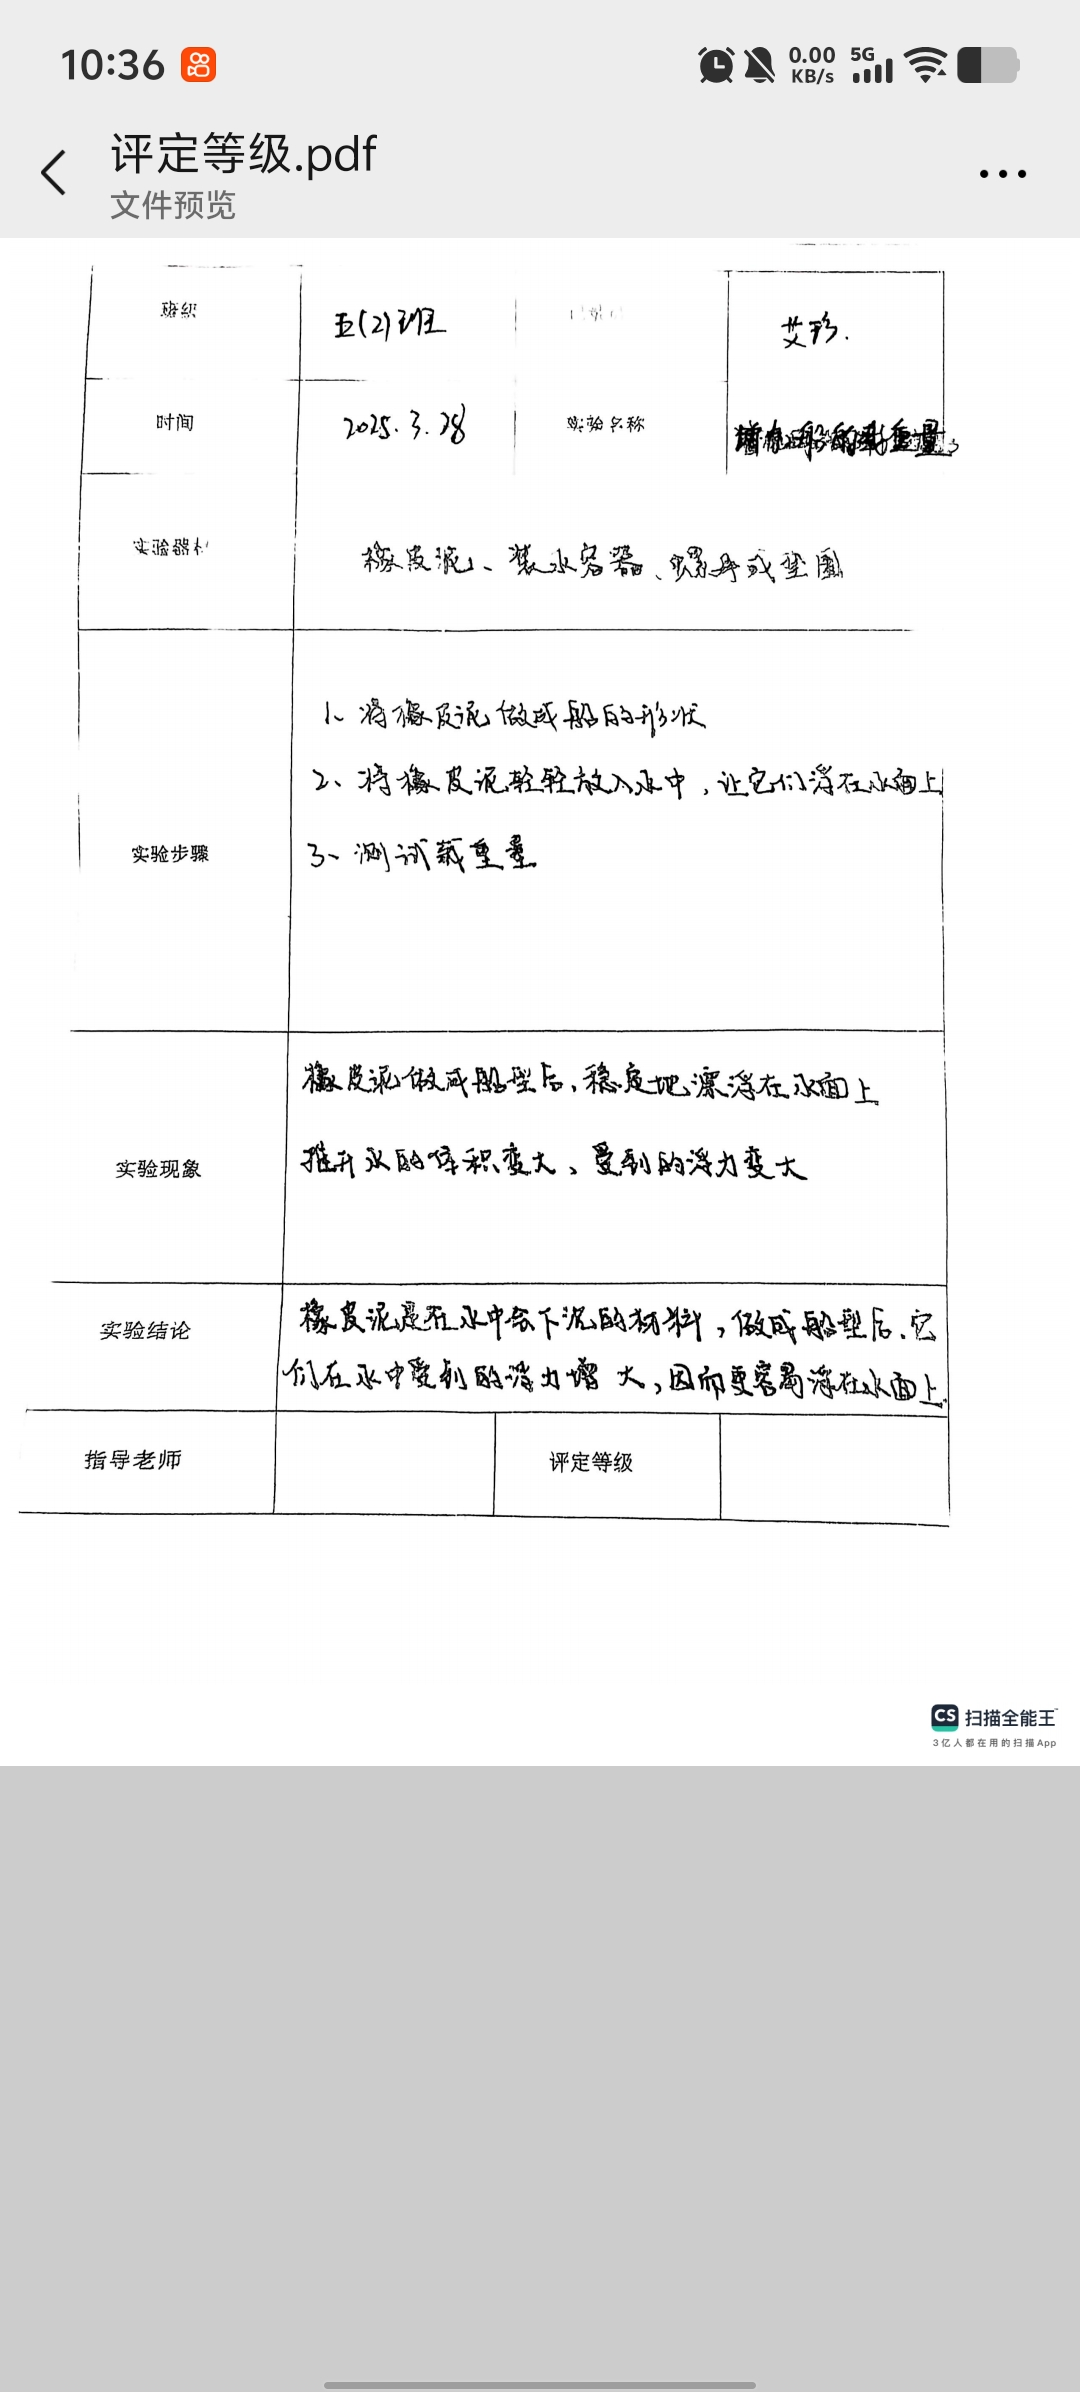 10:36
0.00 KB/s 5G
评定等级.pdf
文件预览
班级 五(2)班 艾珍.
时间 2025.3.28 实验名称 增加船的载重量
实验器材 橡皮泥、装水容器、螺母或垫圈
1、将橡皮泥做成船的形状
2、将橡皮泥轻轻放入水中,让它们浮在水面上
实验步骤
3、测试载重量
橡皮泥做成船型后,稳定地漂浮在水面上
实验现象
排开水的体积变大、受到的浮力变大
实验结论
橡皮泥是在水中会下沉的材料,做成船型后、它
们在水中受到的浮力增大,因而更容易浮在水面上.
指导老师 评定等级
CS 扫描全能王
3亿人都在用的扫描App